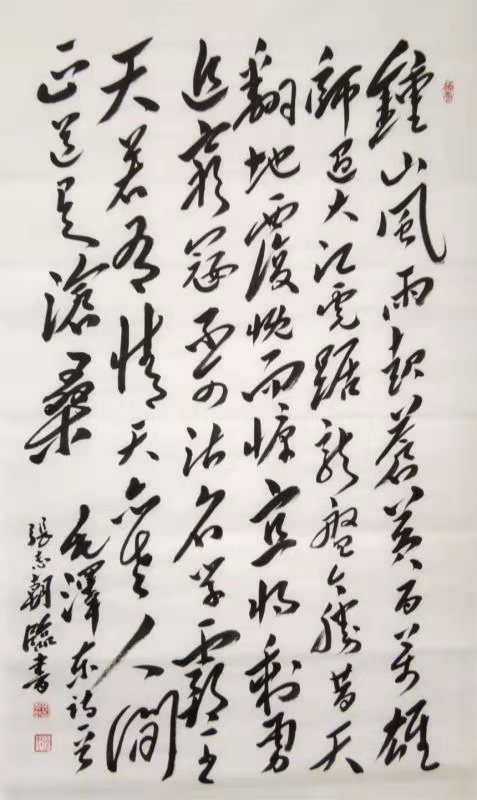 鐘山風雨起蒼黃百萬雄
師過大江虎踞龍盤今勝昔天
翻地覆慨而慷宜將剩勇
追窮寇不可沽名學霸王
天若有情天亦老人間
正道是滄桑
毛澤东詩一首
張志朝臨書